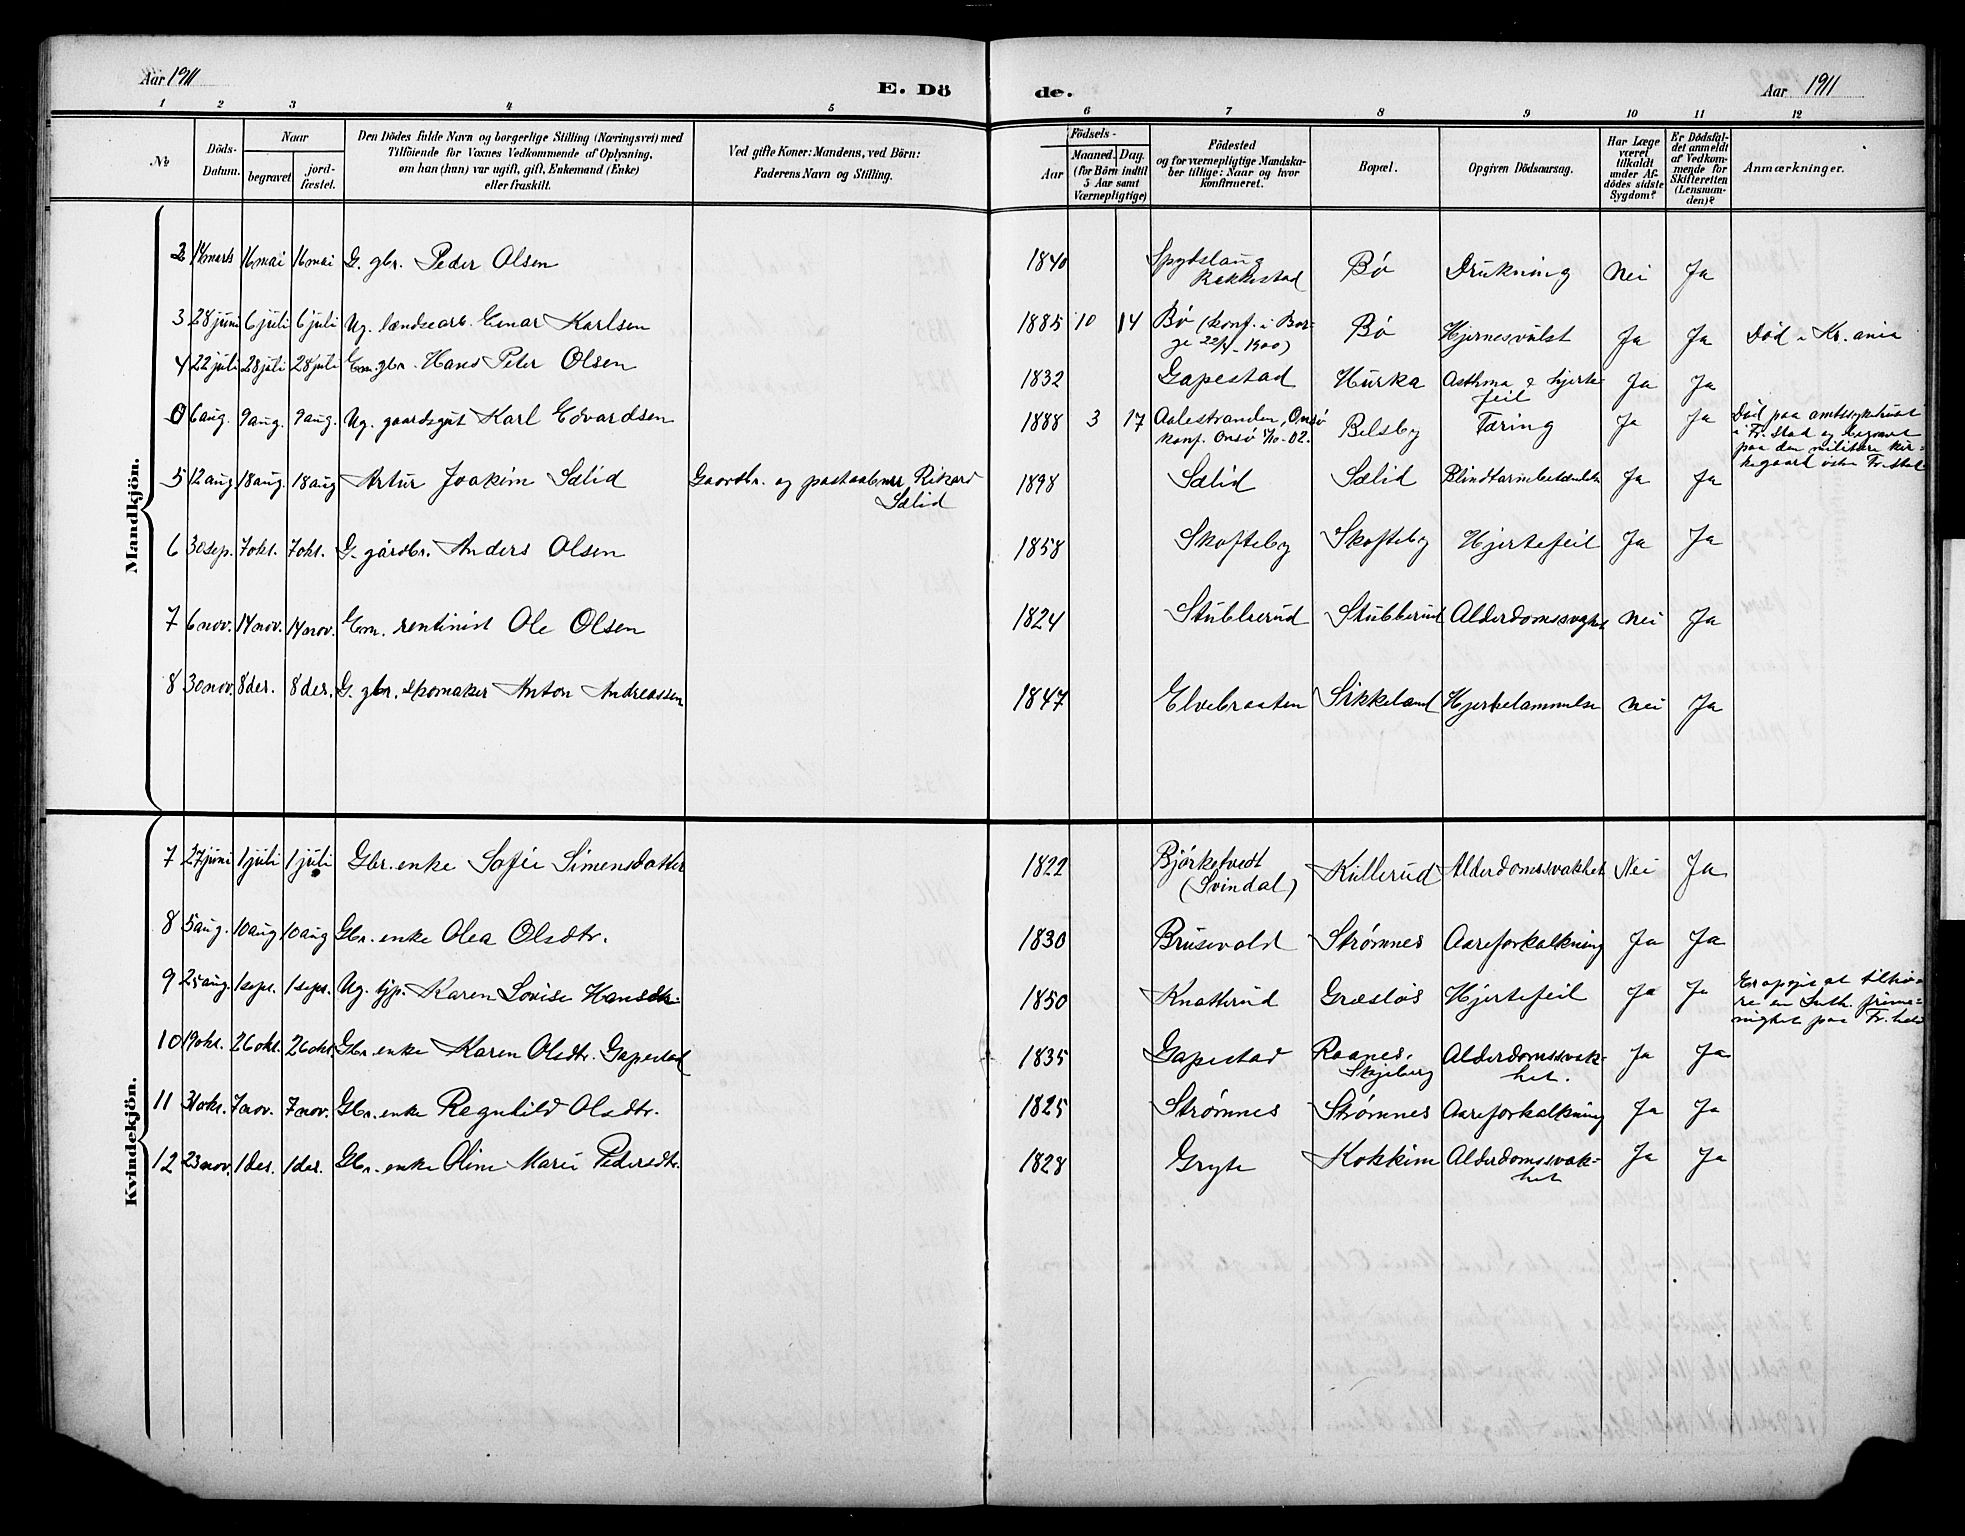 Aar 1911
E. Dö
de.
Aar 1911
1 2 3 4 5 6 7 8 9 10 11 12
No
Döds-
Datum.
Naar
begravet
jord-
fæstet.
Den Dödes fulde Navn og borgerlige Stilling (Næringsvei) med
Tilföiende for Voxnes Vedkommende af Oplysning,
om han (hun) var ugift, gift, Enkemand (Enke)
eller fraskilt.
Ved gifte Koner: Mandens, ved Börn:
Faderens Navn og Stilling.
Födsels-
Aar
Maaned. Dag.
(for Börn indtil
5 Aar samt
Værnepligtige)
Födested
og for værnepligtige Mandska-
ber tillige: Naar og hvor
konfirmeret.
Bopæl.
Opgiven Dödsaarsag.
Har Læge
været
tilkaldt
under Af-
dödes sidste
Sygdom?
Er Dödsfal-
det anmeldt
af Vedkom-
mende for
Skifteretten
(Lensman-
den)?
Anmærkninger.
Mandkjön.
2 14 marts 16 mai 16 mai G. gbr. Peder Olsen 1840 Spydslaug Rakkestad Bø Drukning Nei Ja
3 28 juni 6 juli 6 juli Ug. landsearb. Einar Karlsen 1885 10 14 Bø (konf. i Bor-
ge 22/4-1900) Bø Hjernesvulst Ja Ja Død i Kr.ania
4 22 juli 28 juli 28 juli Em. gbr. Hans Peter Olsen 1832 Gapestad Hurka Asthma & hjerte
feil Ja Ja
0 6 aug. 9 aug. 9 aug. Ug. gaardsgut Karl Edvardsen 1888 3 17 Aalestranden, Onsø
konf. Onsø 1/10-02. Belsby Tæring Ja Ja Død paa amtssykehuset
i Fr.stad og begravet
paa den militære kir-
kegaard østen Fr.stad
5 12 aug. 18 aug. 18 aug Artur Joakim Sælid Gaardbr. og postaabner Rikard
Sælid 1898 Sælid Sælid Blindtarmbetændelse Ja Ja
6 30 sep. 7 okt. 7 okt. G. gårdbr. Anders Olsen 1858 Skofteby Skofteby Hjertefeil Ja Ja
7 6 nov. 14 nov. 14 nov. Em. rentinist Ole Olsen 1824 Stubberud Stubberud Alderdomssvakhet Nei Ja
8 30 nov. 8 des. 8 des. G. gbr. skomaker Anton Andreassen 1847 Elvebraaten Sikkeland Hjertelammelse Nei Ja
Kvindekjön.
7 27 juni 1 juli 1 juli Gbr. enke Sofie Simensdatter 1822 Bjørketvedt
(Svindal) Kullerud Alderdomssvakhet Nei Ja
8 5 aug. 10 aug 10 aug Gbr. enke Olea Olsdtr. 1830 Brusevold Strømnes Aareforkalkning Ja Ja
9 25 aug. 1 sept. 1 sept. Ug. tjp. Karen Lovise Hansdtr. 1850 Knatterud Græsløs Hjertefeil Ja Ja Er opgit at tilhø-
re en luth. frime-
nighet paa Fr.hald
10 19 okt. 26 okt. 26 okt Gbr. enke Karen Olsdtr. Gapestad 1835 Gapestad Raanes,
Skjeberg Alderdomssvak-
het. Ja Ja
11 31 okt. 7 nov. 7 nov. Gbr. enke Ragnhild Olsdtr. 1825 Strømnes Strømnes Aareforkalkning Ja Ja
12 23 nov. 1 des. 1 des. Gbr. enke Oline Marie Pedersdtr. 1828 Gryte Kokkim Alderdomssvak-
het Ja Ja